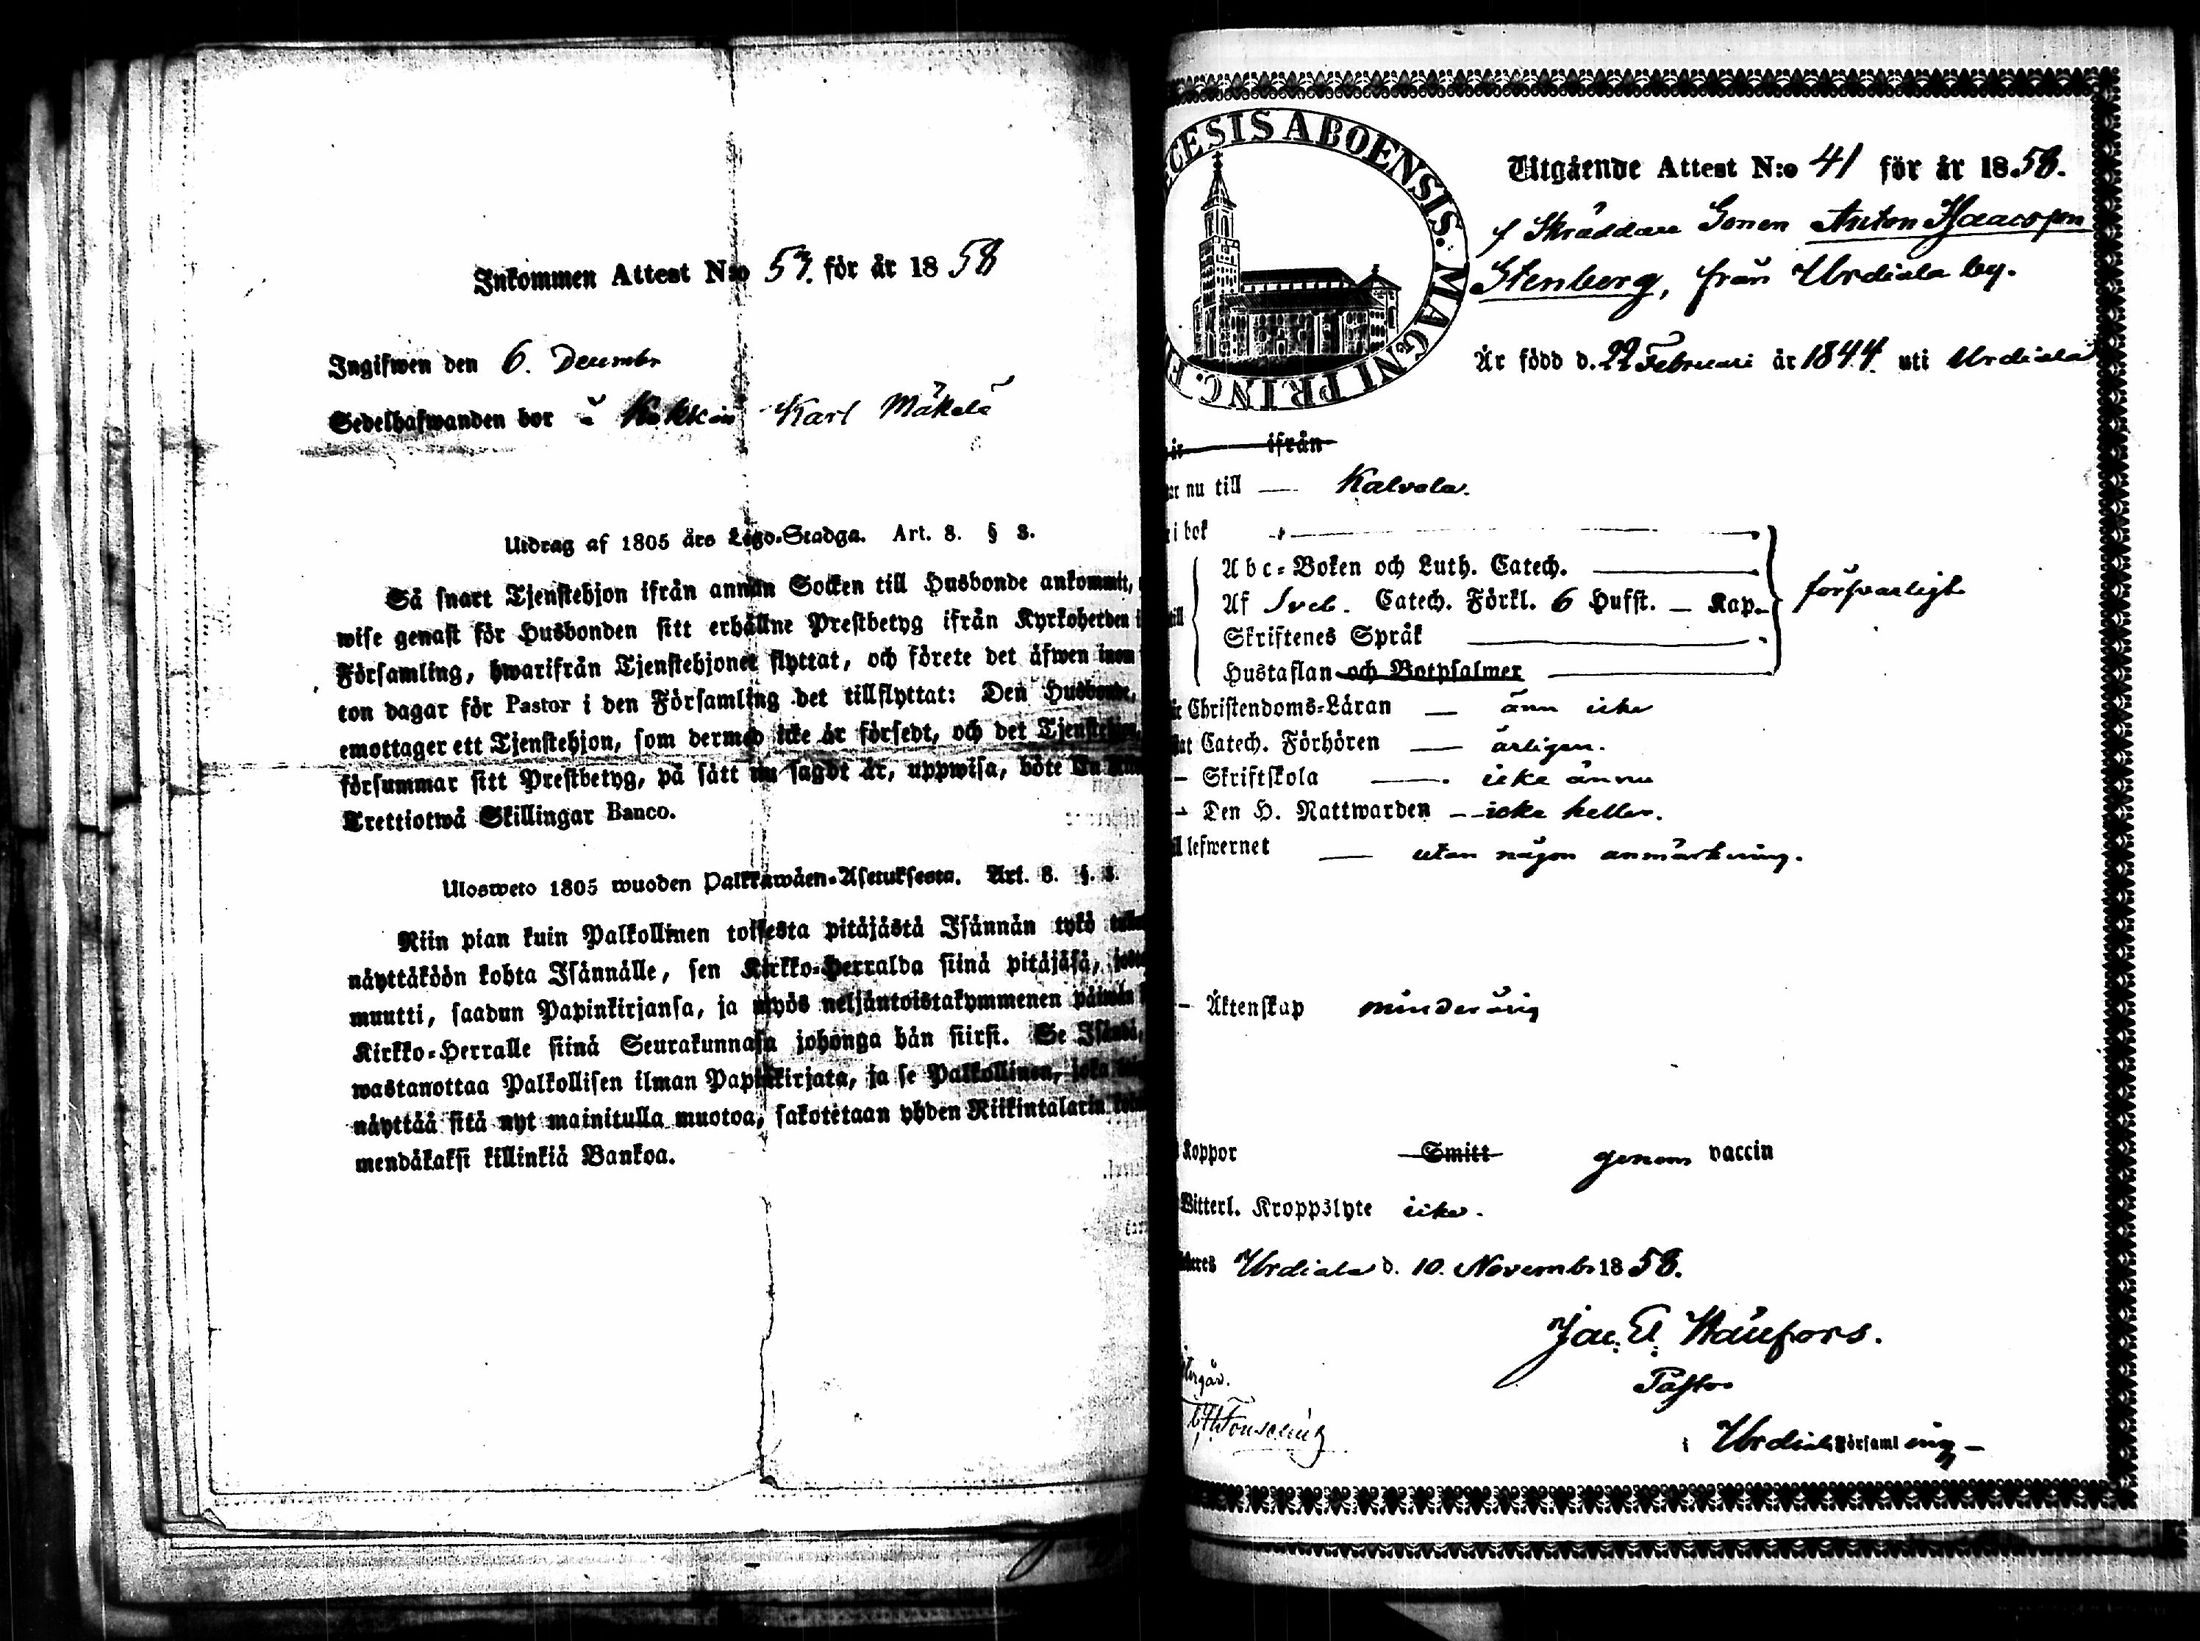 Inkommen Attest N:o 57. för år 1858
Ingifwen den 6. Decembr
Sedelhafwanden bor å Karl Mäkelä
Utdrag af 1805 års Lego-Stadga. Art. 8. § 3.
Så snart Tjenstehjon ifrån annan Socken till Husbonde ankommit,
wise genast för Husbonden sitt erhållne Prestbetyg ifrån Kyrkoherden i
Församling, hwarifrån Tjenstehjonet flyttat, och förete det äfwen inom
ton dagar för Pastor i den Församling det tillflyttat: Den Husbonde,
emottager ett Tjenstehjon, som dermed icke är försedt, och det Tjenstehjon,
försummar sitt Prestbetyg, på sätt nu sagdt är, uppwisa, böte En
Trettiotwå Skillingar Banco.
Ulosweto 1805 wuoden Palkkawäen-Asetuksesta. Art. 8. §. 3.
Niin pian kuin Palkollinen toisesta pitäjästä Isännän tykö
näyttäköön kohta Isännälle, sen Kirkko-Herralda siinä pitäjäsä,
muutti, saadun Papinkirjansa, ja myös neljäntoistakymmenen päiwän
Kirkko-Herralle siinä Seurakunnasa johonga hän siirsi. Se Isändä,
wastanottaa Palkollisen ilman Papinkirjata, ja se Palkollinen, joka
näyttää sitä nyt mainitulla muotoa, sakotetaan yhden Riikintalarin
mendäkaksi killinkiä Bankoa.
CESIS ABOENSIS. MAGNI PRINC. F
Utgående Attest N:o 41 för år 1858.
f Skräddare Sonen Anton Isaacsson
Stenberg, från Urdiala by.
Är född d. 22 Februari år 1844. uti Urdiala
ifrån
nu till Kalvola.
i bok
Abc-Boken och Luth. Catech.
Af Sveb. Catech. Förkl. 6 Hufst. Kap. försvarligt
Skriftenes Språk
Hustaflan och Botpsalmer
Christendoms-Läran änn icke
Catech. Förhören årligen.
Skriftskola icke ännu
Den H. Nattwarden icke heller.
lefwernet utan någon anmärkning.
Äktenskap minderårig
koppor Smitt genom vaccin
Witterl. Kroppslyte icke.
Urdiala d. 10. Novembr 1858.
Jac. El. Stäufors.
Pastor
i Urdiala Församling